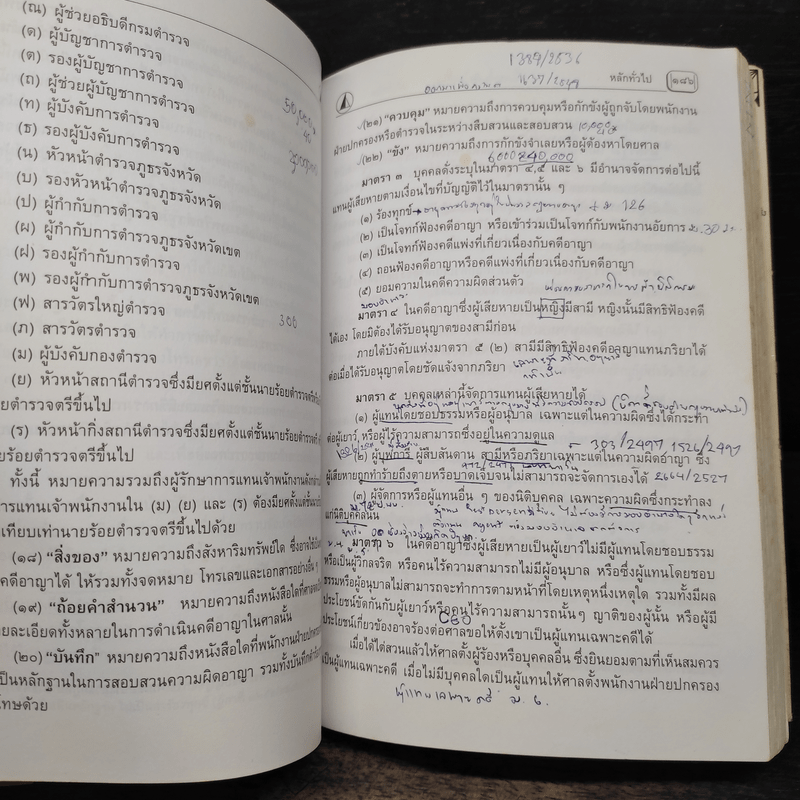 (ณ) ผู้ช่วยอธิบดีกรมตำรวจ
(ด) ผู้บัญชาการตำรวจ
(ต) รองผู้บัญชาการตำรวจ
(ถ) ผู้ช่วยผู้บัญชาการตำรวจ
(ท) ผู้บังคับการตำรวจ
(ธ) รองผู้บังคับการตำรวจ
(น) หัวหน้าตำรวจภูธรจังหวัด
(บ) รองหัวหน้าตำรวจภูธรจังหวัด
(ป) ผู้กำกับการตำรวจ
(ผ) ผู้กำกับการตำรวจภูธรจังหวัดเขต
(ฝ) รองผู้กำกับการตำรวจ
(พ) รองผู้กำกับการตำรวจภูธรจังหวัดเขต
(ฟ) สารวัตรใหญ่ตำรวจ
300
(ภ) สารวัตรตำรวจ
(ม) ผู้บังคับกองตำรวจ
(ย) หัวหน้าสถานีตำรวจซึ่งมียศตั้งแต่ชั้นนายร้อยตำรวจตรี
ยตำรวจตรีขึ้นไป
(ร) หัวหน้ากิ่งสถานีตำรวจซึ่งมียศตั้งแต่ชั้นนายร้อยตำรวจ
ยร้อยตำรวจตรีขึ้นไป
ทั้งนี้ หมายความรวมถึงผู้รักษาการแทนเจ้าพนักงาน
การแทนเจ้าพนักงานใน (ม) (ย) และ (ร) ต้องมียศตั้งแต่ชั้น
เทียบเท่านายร้อยตำรวจตรีขึ้นไปด้วย
(๑๘) “สิ่งของ” หมายความถึงสังหาริมทรัพย์ใด ซึ่งอาจใช้
คดีอาญาได้ ให้รวมทั้งจดหมาย โทรเลขและเอกสารอย่างอื่น ๆ
(๑๙) “ถ้อยคำสำนวน” หมายความถึงหนังสือใดที่ศาล
ยละเอียดทั้งหลายในการดำเนินคดีอาญาในศาลนั้น
(๒๐) “บันทึก” หมายความถึงหนังสือใดที่พนักงานฝ่ายปกครอง
เป็นหลักฐานในการสอบสวนความผิดอาญา รวมทั้งบันทึก
โทษด้วย
1389/2536
1637/2549
หลักทั่วไป ๑๔๖
(๒๑) “ควบคุม” หมายความถึงการควบคุมหรือกักขังผู้ถูกจับโดยพนักงาน
ฝ่ายปกครองหรือตำรวจในระหว่างสืบสวนและสอบสวน
(๒๒) “ขัง” หมายความถึงการกักขังจำเลยหรือผู้ต้องหาโดยศาล
มาตรา ๓ บุคคลดั่งระบุในมาตรา ๔,๕ และ ๖ มีอำนาจจัดการต่อไปนี้
แทนผู้เสียหายตามเงื่อนไขที่บัญญัติไว้ในมาตรานั้น ๆ
(๑) ร้องทุกข์
(๒) เป็นโจทก์ฟ้องคดีอาญา หรือเข้าร่วมเป็นโจทก์กับพนักงานอัยการ
(๓) เป็นโจทก์ฟ้องคดีแพ่งที่เกี่ยวเนื่องกับคดีอาญา
(๔) ถอนฟ้องคดีอาญาหรือคดีแพ่งที่เกี่ยวเนื่องกับคดีอาญา
(๕) ยอมความในคดีความผิดส่วนตัว
มาตรา ๔ ในคดีอาญาซึ่งผู้เสียหายเป็นหญิงมีสามี หญิงนั้นมีสิทธิฟ้องคดี
ได้เอง โดยมิต้องได้รับอนุญาตของสามีก่อน
ภายใต้บังคับแห่งมาตรา ๕ (๒) สามีมีสิทธิฟ้องคดีอาญาแทนภริยาได้
ต่อเมื่อได้รับอนุญาตโดยชัดแจ้งจากภริยา
มาตรา ๕ บุคคลเหล่านี้จัดการแทนผู้เสียหายได้
(๑) ผู้แทนโดยชอบธรรมหรือผู้อนุบาล เฉพาะแต่ในความผิดซึ่งได้กระทำ
ต่อผู้เยาว์ หรือผู้ไร้ความสามารถซึ่งอยู่ในความดูแล
303/2497 1526/2497
(๒) ผู้บุพการี ผู้สืบสันดาน สามีหรือภริยาเฉพาะแต่ในความผิดอาญา ซึ่ง
ผู้เสียหายถูกทำร้ายถึงตายหรือบาดเจ็บจนไม่สามารถจะจัดการเองได้ 2664/2527
(๓) ผู้จัดการหรือผู้แทนอื่น ๆ ของนิติบุคคล เฉพาะความผิดซึ่งกระทำลง
แก่นิติบุคคลนั้น
มาตรา ๖ ในคดีอาญาซึ่งผู้เสียหายเป็นผู้เยาว์ไม่มีผู้แทนโดยชอบธรรม
หรือเป็นผู้วิกลจริต หรือคนไร้ความสามารถไม่มีผู้อนุบาล หรือซึ่งผู้แทนโดยชอบ
ธรรมหรือผู้อนุบาลไม่สามารถจะทำการตามหน้าที่โดยเหตุหนึ่งเหตุใด รวมทั้งมีผล
ประโยชน์ขัดกันกับผู้เยาว์หรือคนไร้ความสามารถนั้น ๆ ญาติของผู้นั้น หรือผู้มี
ประโยชน์เกี่ยวข้องอาจร้องต่อศาลขอให้ตั้งเขาเป็นผู้แทนเฉพาะคดีได้
เมื่อได้ไต่สวนแล้วให้ศาลตั้งผู้ร้องหรือบุคคลอื่น ซึ่งยินยอมตามที่เห็นสมควร
เป็นผู้แทนเฉพาะคดี เมื่อไม่มีบุคคลใดเป็นผู้แทนให้ศาลตั้งพนักงานฝ่ายปกครอง
ผู้แทนเฉพาะคดี ม. 6.